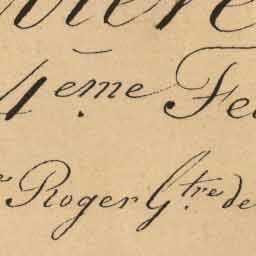 4ème Fe
Roger G.tre de